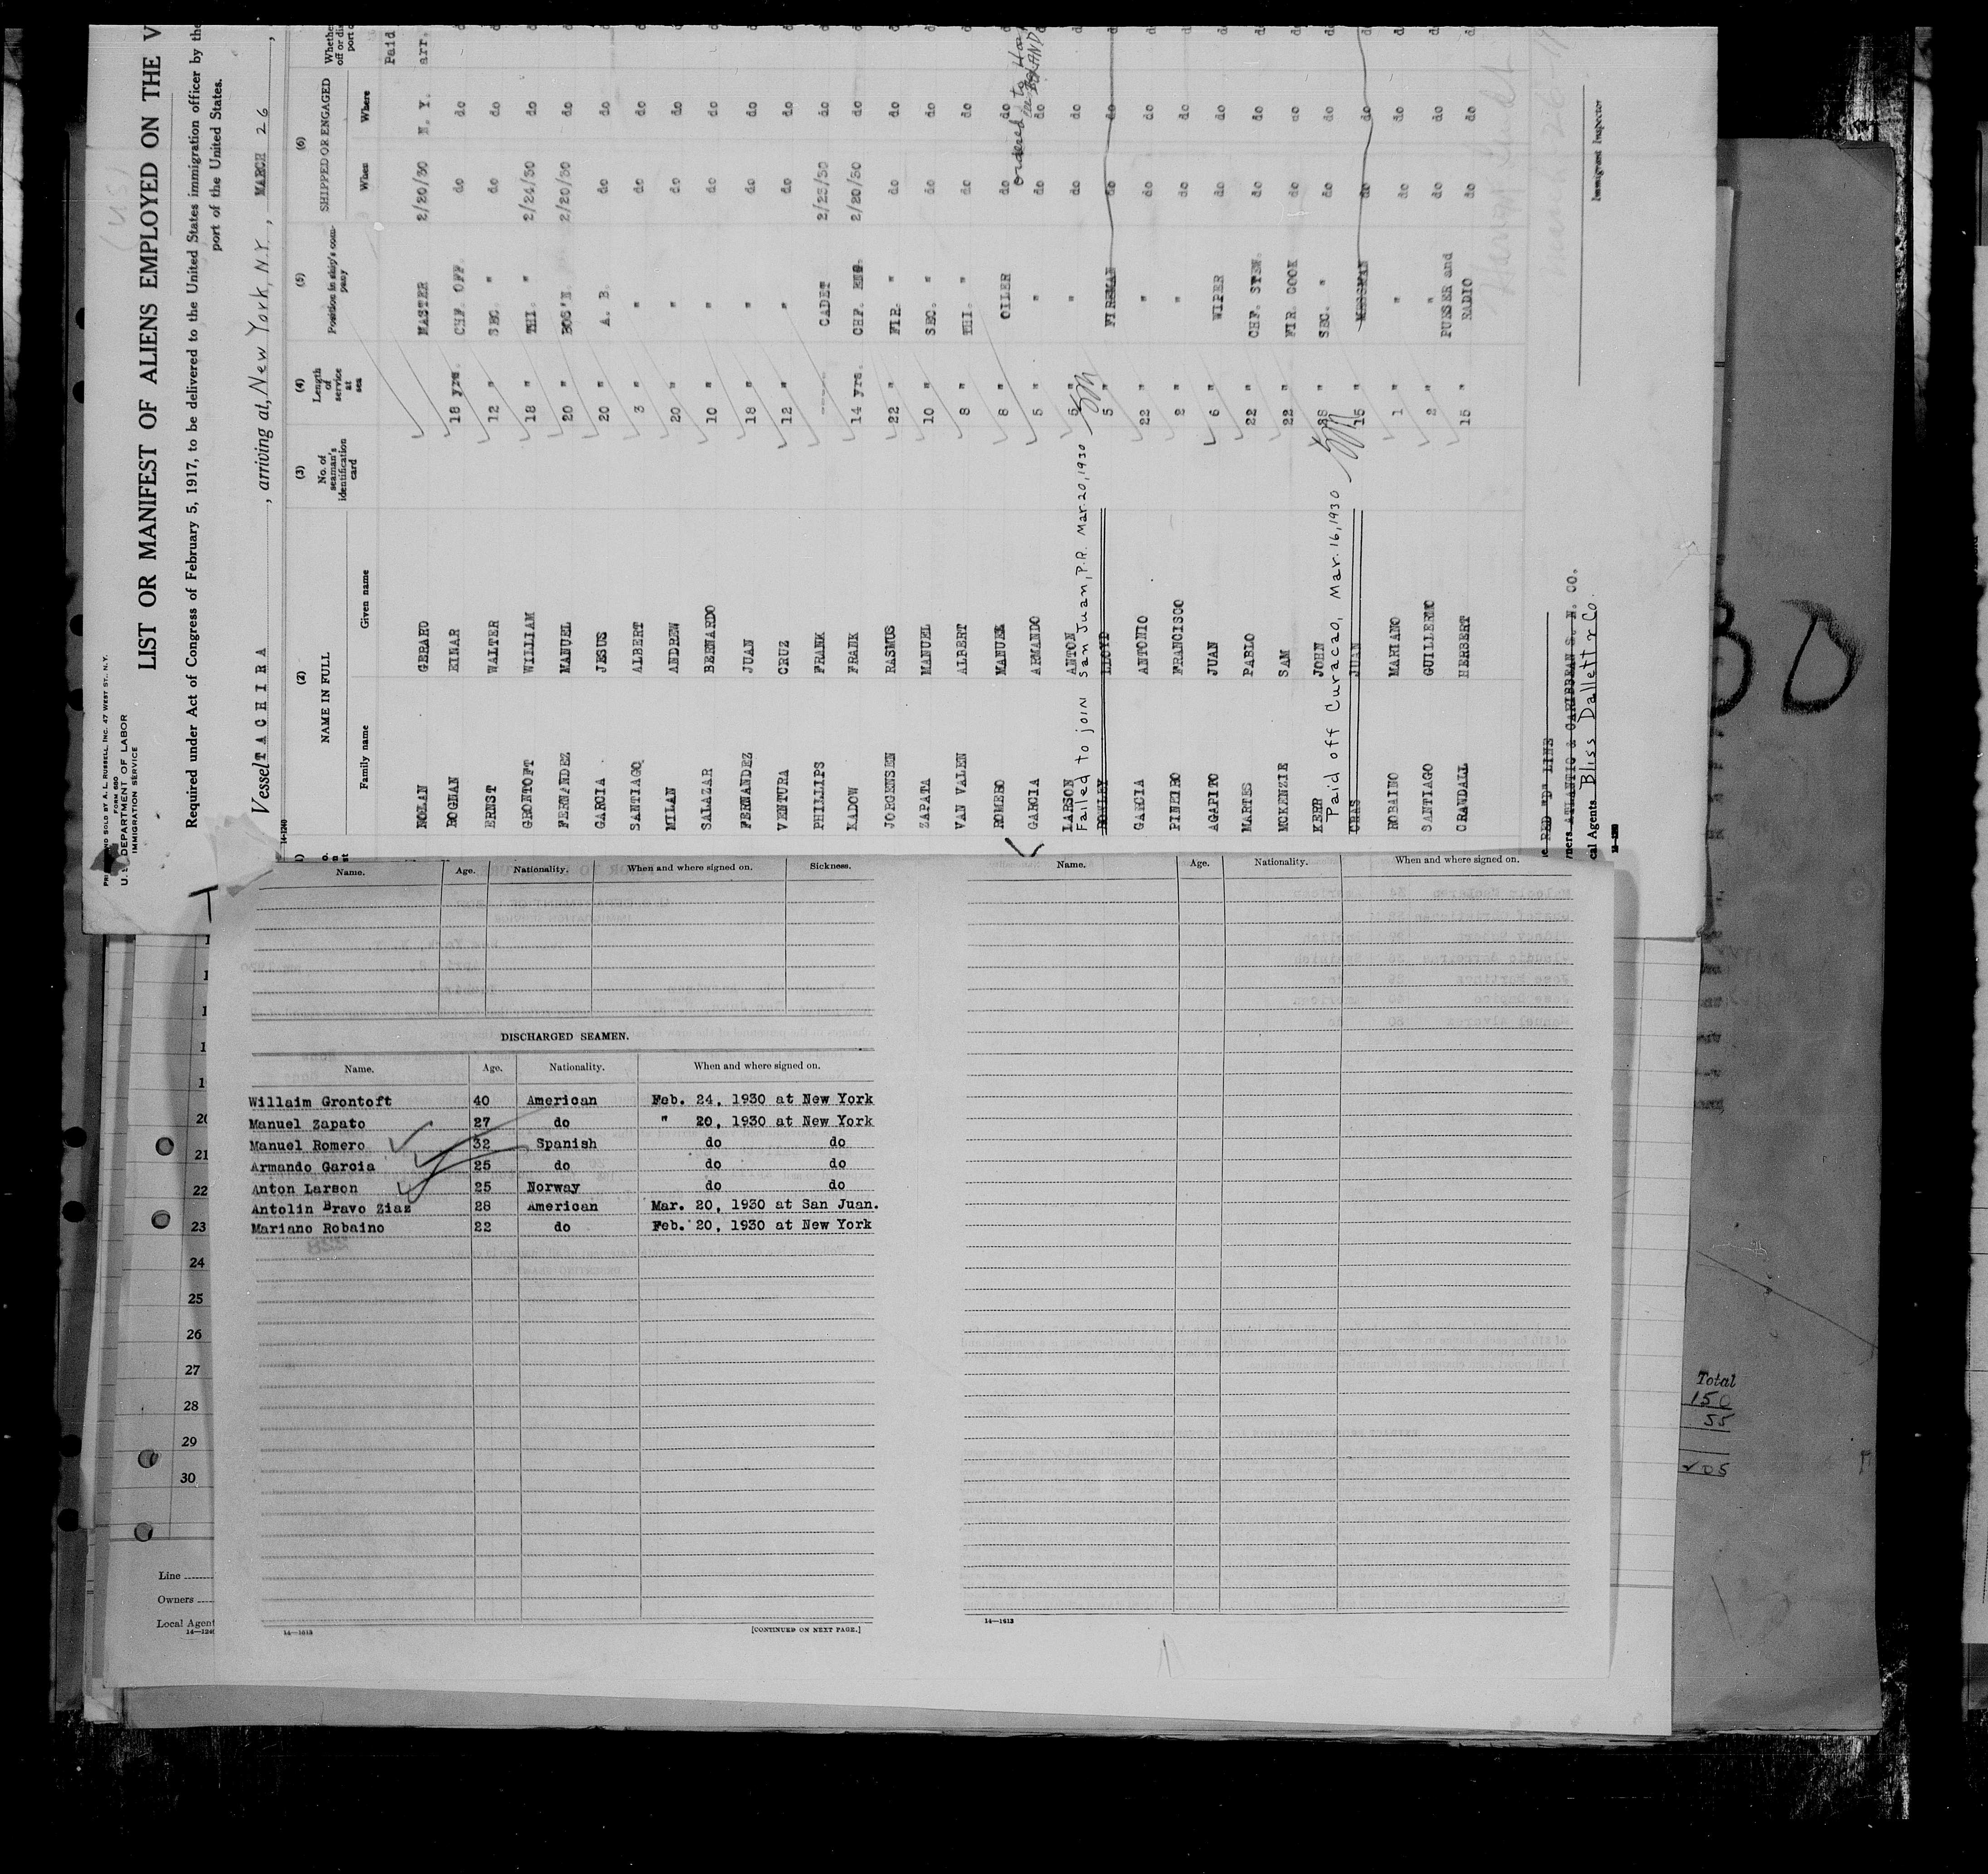 PRINTED AND SOLD BY A. L. RUSSELL, INC. 47 WEST ST., N. Y.
FORM 680
U. S. DEPARTMENT OF LABOR
IMMIGRATION SERVICE
LIST OR MANIFEST OF ALIENS EMPLOYED ON THE V
Required under Act of Congress of February 5, 1917, to be delivered to the United States immigration officer by the
port of the United States.
Vessel TACHIRA, arriving at, New York, N.Y., MARCH 26,
14-1240
(2) (3) (4) (5) (6)
NAME IN FULL No. of seaman's identification card Length of service at sea Position in ship's company SHIPPED OR ENGAGED
Family name Given name When Where
Paid
NOLAN GERARD MASTER 2/20/30 N. Y. arr.
ROGNAN EINAR 18 yrs. CHF. OFF. do do
ERNST WALTER 12 " SEC. " do do
GRONTOFT WILLIAM 18 " THI. " 2/24/30 do
FERNANDEZ MANUEL 20 " BOS'N. 2/20/30 do
GARCIA JESUS 20 " A. B. do do
SANTIAGO ALBERT 3 " " do do
MILAN ANDREW 20 " " do do
SALAZAR BERNARDO 10 " " do do
FERNANDEZ JUAN 18 " " do do
VENTURA CRUZ 12 " " do do
PHILLIPS FRANK ----- CADET 2/25/30 do
KADOW FRANK 14 yrs. CHF. ENG. 2/20/30 do
JORGENSEN RASMUS 22 " FIR. " do do
ZAPATA MANUEL 10 " SEC. " do do
VAN VALEN ALBERT 8 " THI. " do do
ROMERO MANUEL 8 " OILER do do
ordered to
GARCIA ARMANDO 5 " " do do
LARSON ANTON 5 " " do do
Failed to join San Juan, P.R. Mar. 20, 1930
ROWLEY LLOYD 5 " FIREMAN do do
GARCIA ANTONIO 22 " " do do
PINEIRO FRANCISCO 2 " " do do
AGAPITO JUAN 6 " WIPER do do
MARTES PABLO 22 " CHF. STEW. do do
MCKENZIE SAM 22 " FIR. COOK do do
KERR JOHN 28 " SEC. " do do
Paid off Curacao, Mar. 16, 1930
JUAN 15 " MESSMAN do do
ROBAINO MARIANO 1 " " do do
SANTIAGO GUILLERMO 2 " " do do
CRANDALL HERBERT 15 " PURSER and RADIO do do
RED "D" LINE
ATLANTIC & CARIBBEAN S. N. CO.
cal Agents Bliss Dallett & Co.
Immigrant Inspector
Name. Age. Nationality. When and where signed on. Sickness.
DISCHARGED SEAMEN.
Name. Age. Nationality. When and where signed on.
Willaim Grontoft 40 American Feb. 24, 1930 at New York
Manuel Zapato 27 do " 20, 1930 at New York
Manuel Romero 32 Spanish do do
Armando Garcia 25 do do do
Anton Larson 25 Norway do do
Antolin Bravo Ziaz 28 American Mar. 20, 1930 at San Juan.
Mariano Robaino 22 do Feb. 20, 1930 at New York
14—1613
[CONTINUED ON NEXT PAGE.]
Name. Age. Nationality. When and where signed on.
14—1613
20
21
22
23
24
25
26
27
28
29
30
Line
Owners
Local Agent
14—124
Total
150
55